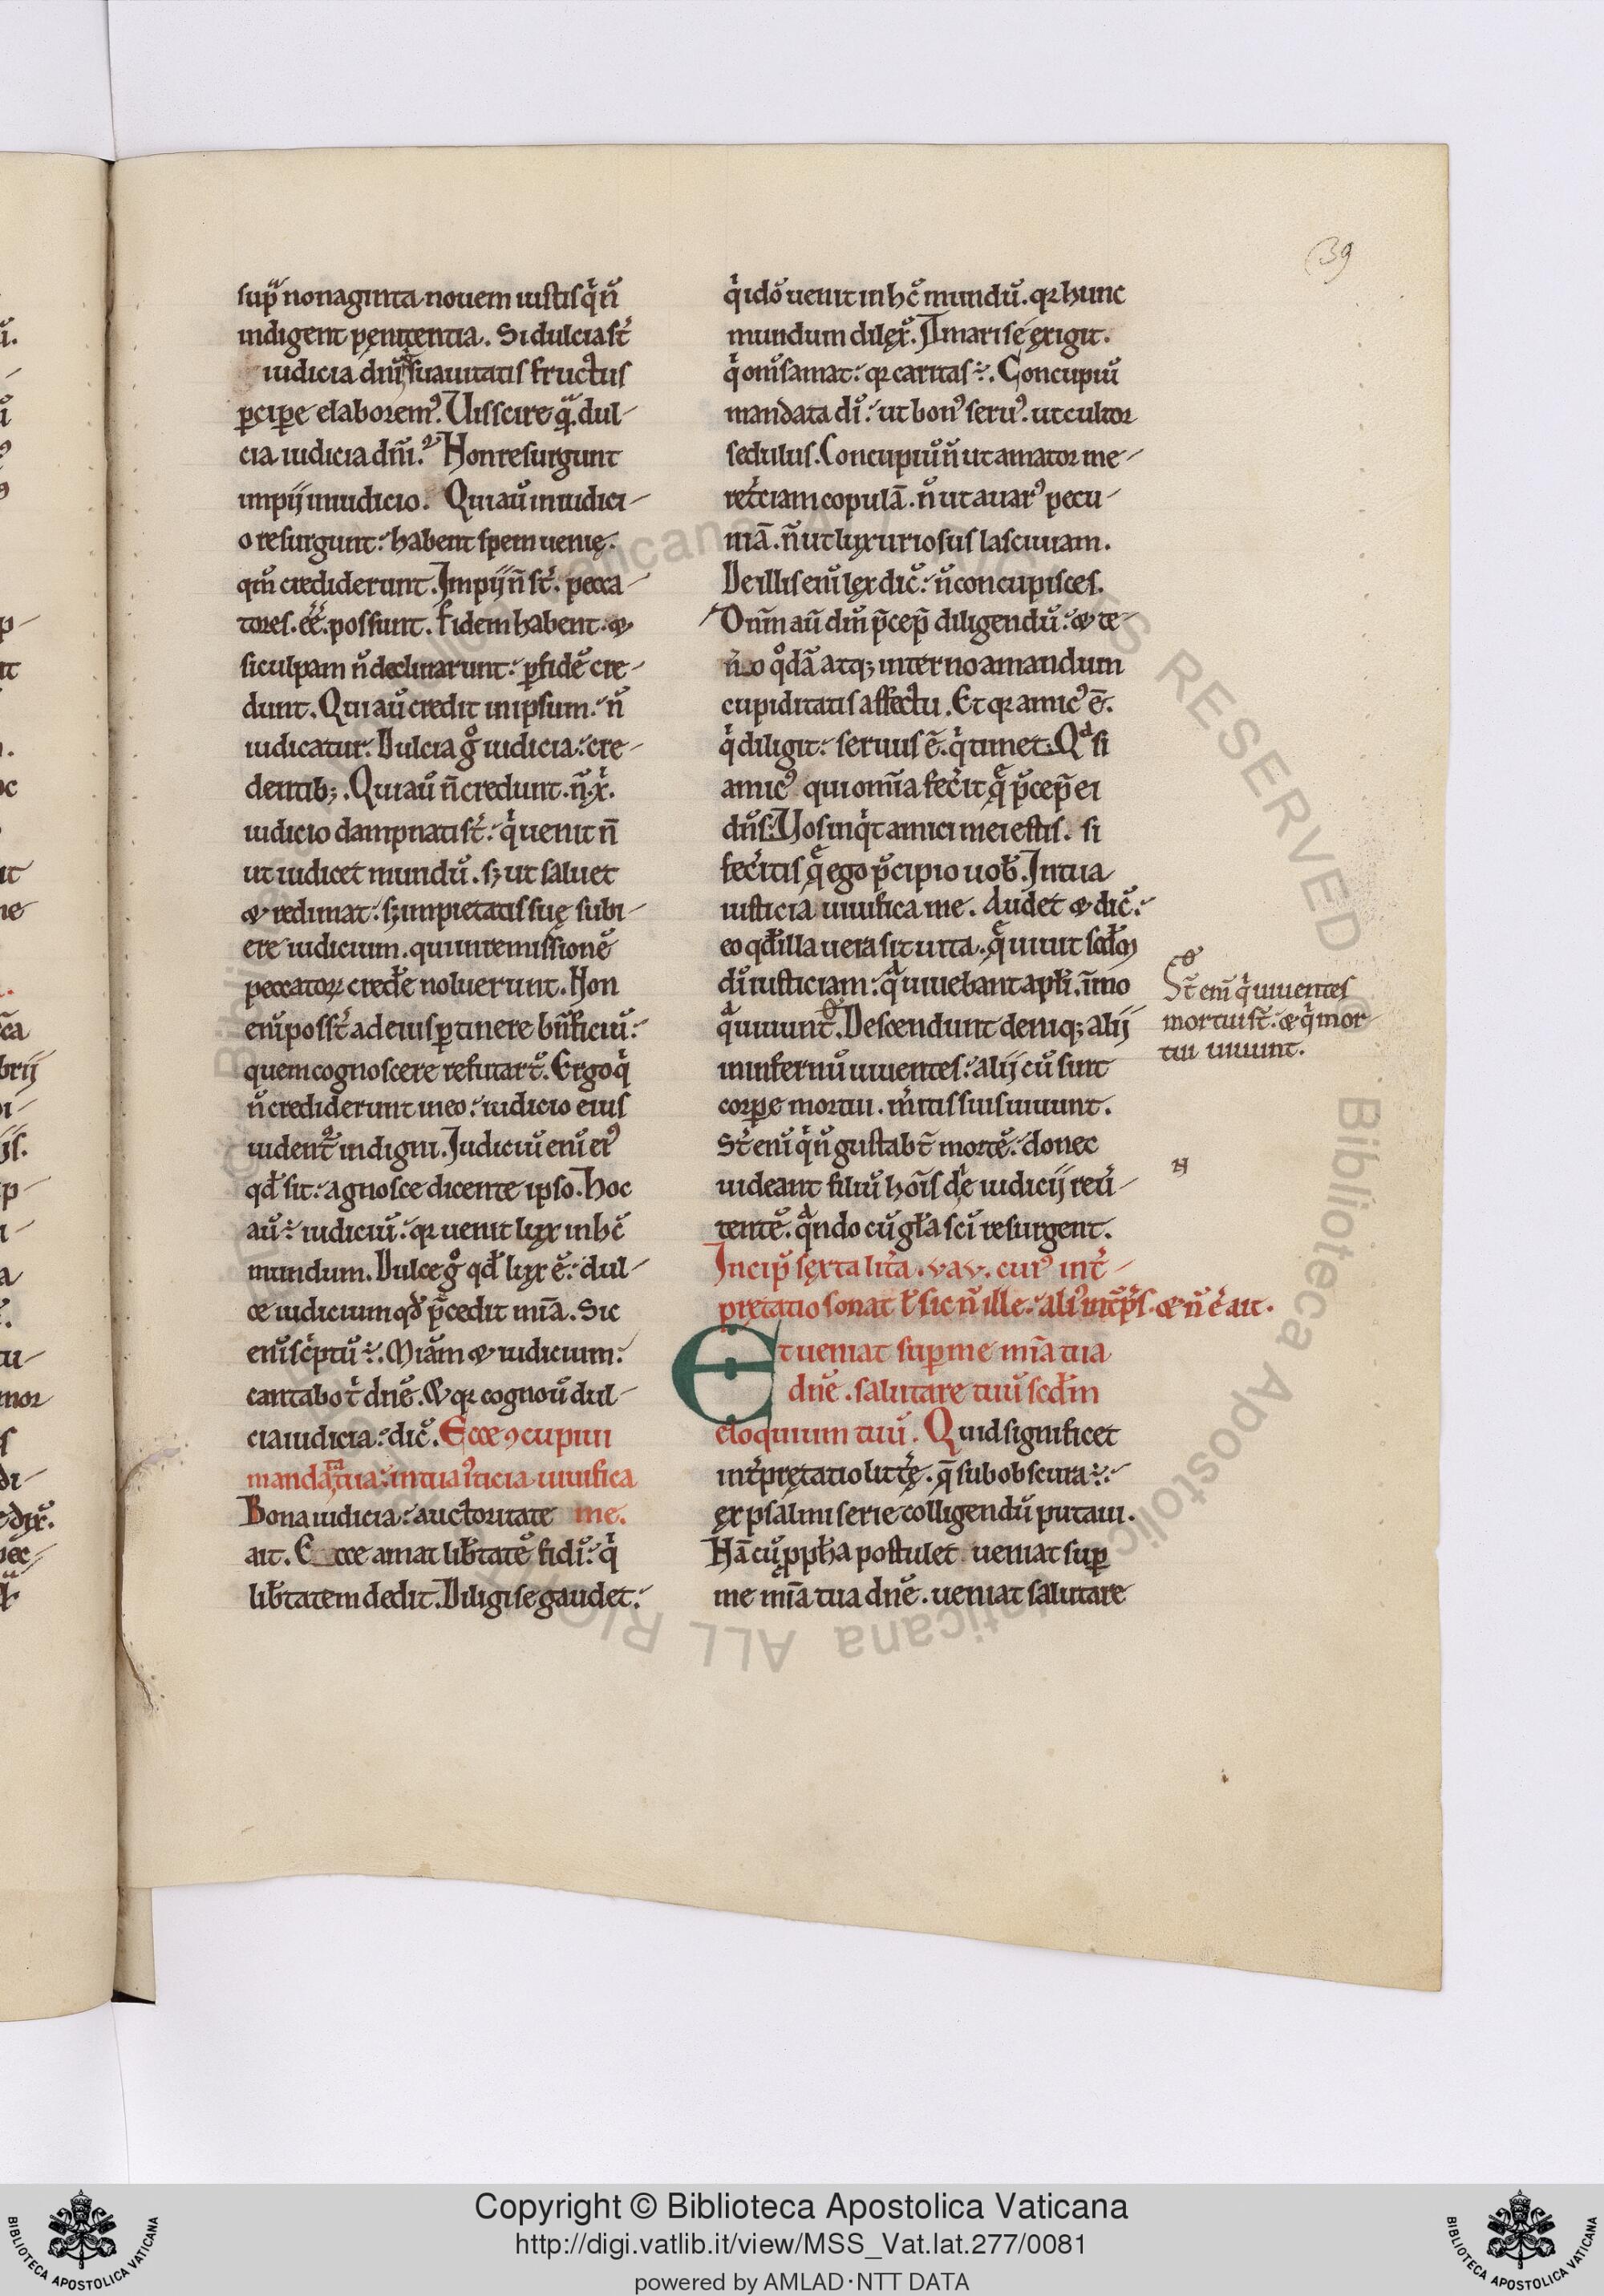 39
sup̄ nonaginta nouem iustis q̇ n̄
indigent penitentia. Si dulcia st̄
iudicia dn̄i suauitatis fructus
ꝑciꝑe elaborem᷒. Uis scire q̄ dul-
cia iudicia dn̄i? Non resurgunt
impij in iudicio. Qui aū in iudici-
o resurgunt: habent spem ueniȩ.
qm̄ crediderunt. Impij n̄ st̄. pecca-
tores. ēē. possunt. fidem habent. &
si culpam n̄ declinarunt: ꝑ fidē cre-
dunt. Qui aū credit in ipsum: n̄
iudicatur. Dulcia g̊ iudicia: cre-
dentib;. Qui aū n̄ credunt. n̄ x̄.
iudicio dampnati st̄: q̇ uenit n̄
ut iudicet mundū. sꝫ ut saluet
& redimat: sꝫ impietatis suȩ subi-
ere iudicium. qui in remissionē
peccatoꝝ credē noluerunt. Non
enī posst̄ ad eius ꝑtinere bn̄ficiū:
quem cognoscere refutart̄. Ergo q̇
n̄ crediderunt in eo: iudicio eius
uident᷑ indigni. Judiciū enī ei᷒
qd̄ sit: agnosce dicente ipso. hoc
aū ÷ iudiciū: qꝛ uenit lux in hc̄
mundum. Dulce g̊ qd̄ lux ē: dul-
ce iudicium qd̄ p̄cedit mīa. Sic
enī sċptū ÷. Miām & iudicium:
cantabo ṫ dnē. & qꝛ cognoū dul-
cia iudicia: dic̄. Ecce ꝯcupiui
mandata tua: in tua iusticia uiuifica
Bona iudicia: auctoritate me.
ait. Ecce amat lib̄tatē fidī: q̇
lib̄tatem dedit. Diligi se gaudet:
q̇ idō uenit in hc̄ mundū. qꝛ hunc
mundum dilex̄. Amari se exigit.
q̇ om̄s amat: qꝛ caritas ÷. Concupiū
mandata dī: ut bon᷒ seru᷒. ut cultor
sedulus. Concupiū n̄ ut amator me-
ret̄ciam copulā. n̄ ut auar᷒ pecu-
niā. n̄ ut luxuriosus lasciuiam.
De illis enī lex dic̄: n̄ concupisces.
Dn̄m aū dm̄ p̄cep̄ diligendū: & te-
n̄o q̊dā atqꝫ interno amandum
cupiditatis affectu. Et qꝛ amic᷒ ē.
q̇ diligit: seruus ē. q̇ timet. Qd si
amic᷒ qui omīa fec̄it q̄ p̄cep̄ ei
dn̄s: Uos inq̇t amici mei estis. si
fec̄itis q̄ ego p̄cipio uob̄. In tua
iusticia uiuifica me. Audet & dic̄:
eo qd̄ illa uera sit uita. q̄ uiuit scd̄m
dī iusticiam: q̄ uiuebant apl̄i, im̄o
q̄ uiuunt. Descendunt deniqꝫ alij
in infernū uiuentes: alij cū sint
corꝑe mortui. m̄itis suis uiuunt.
St̄ enī q̇ n̄ gustabt̄ mortē: donec
uideant filiū hoīs de iudicij reū-
tentē. q̄ndo cū gl̄a sc̄i resurgent.
St̄ enī q̇ uiuentes
mortui st̄: & q̇ mor-
tui uiuunt.
Incip̄ sexta lit̄a. vav. cui᷒ int̄-
pretatio sonat ł sic n̄ ille: ali᷒ int̄p̄s. & n̄ ē ait.
Et ueniat suꝑ me mīa tua
dnē. salutare tuū scd̄m
eloquium tuū. Quid significet
int̄pretatio litt̄ȩ. q̄ subobscura ÷:
ex psalmi serie colligendū putaui.
Nā cū ꝓph̄a postulet ueniat suꝑ
me mīa tua dnē. ueniat salutare
Copyright © Biblioteca Apostolica Vaticana
http://digi.vatlib.it/view/MSS_Vat.lat.277/0081
powered by AMLAD·NTT DATA
BIBLIOTECA APOSTOLICA VATICANA
BIBLIOTECA APOSTOLICA VATICANA